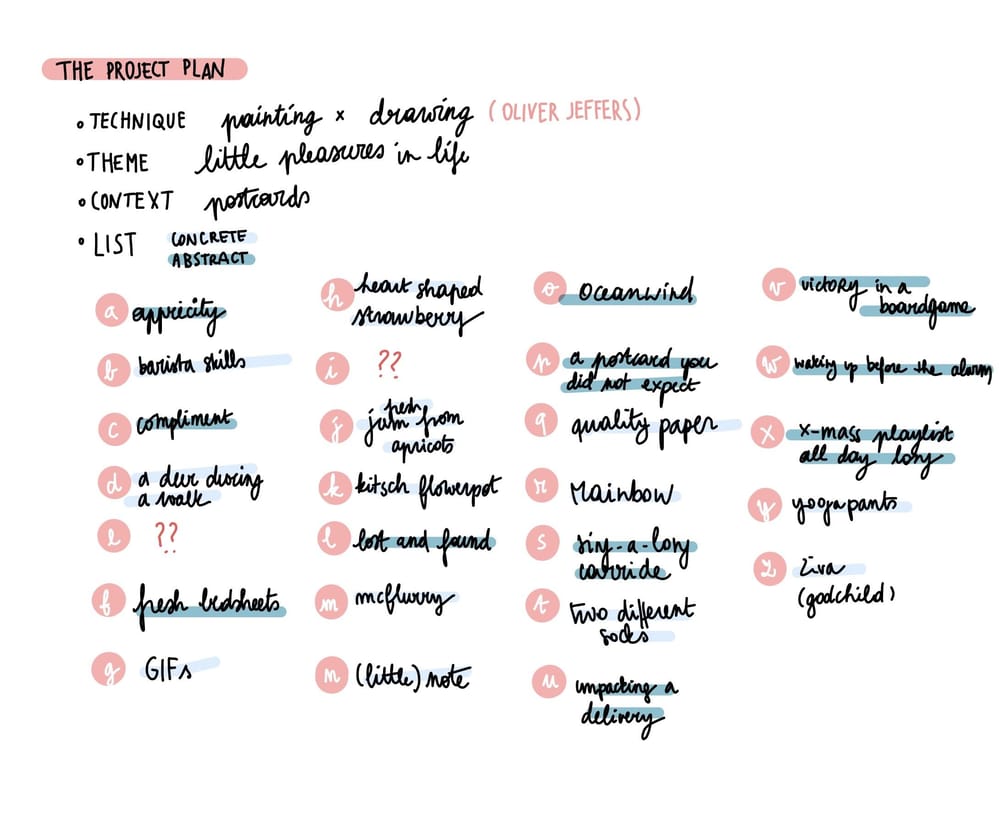 THE PROJECT PLAN
• TECHNIQUE painting x drawing (OLIVER JEFFERS)
• THEME little pleasures in life
• CONTEXT postcards
• LIST CONCRETE
ABSTRACT
a appricity
b barista skills
c compliment
d a deer during
a walk
e ??
f fresh bedsheets
g GIFs
h heart shaped
strawberry
i ??
j fresh
jam from
apricots
k kitsch flowerpot
l lost and found
m mcflurry
n (little) note
o oceanwind
p a postcard you
did not expect
q quality paper
r Rainbow
s sing-a-long
carride
t two different
socks
u unpacking a
delivery
v victory in a
boardgame
w waking up before the alarm
x x-mass playlist
all day long
y yoga pants
z Ziva
(godchild)